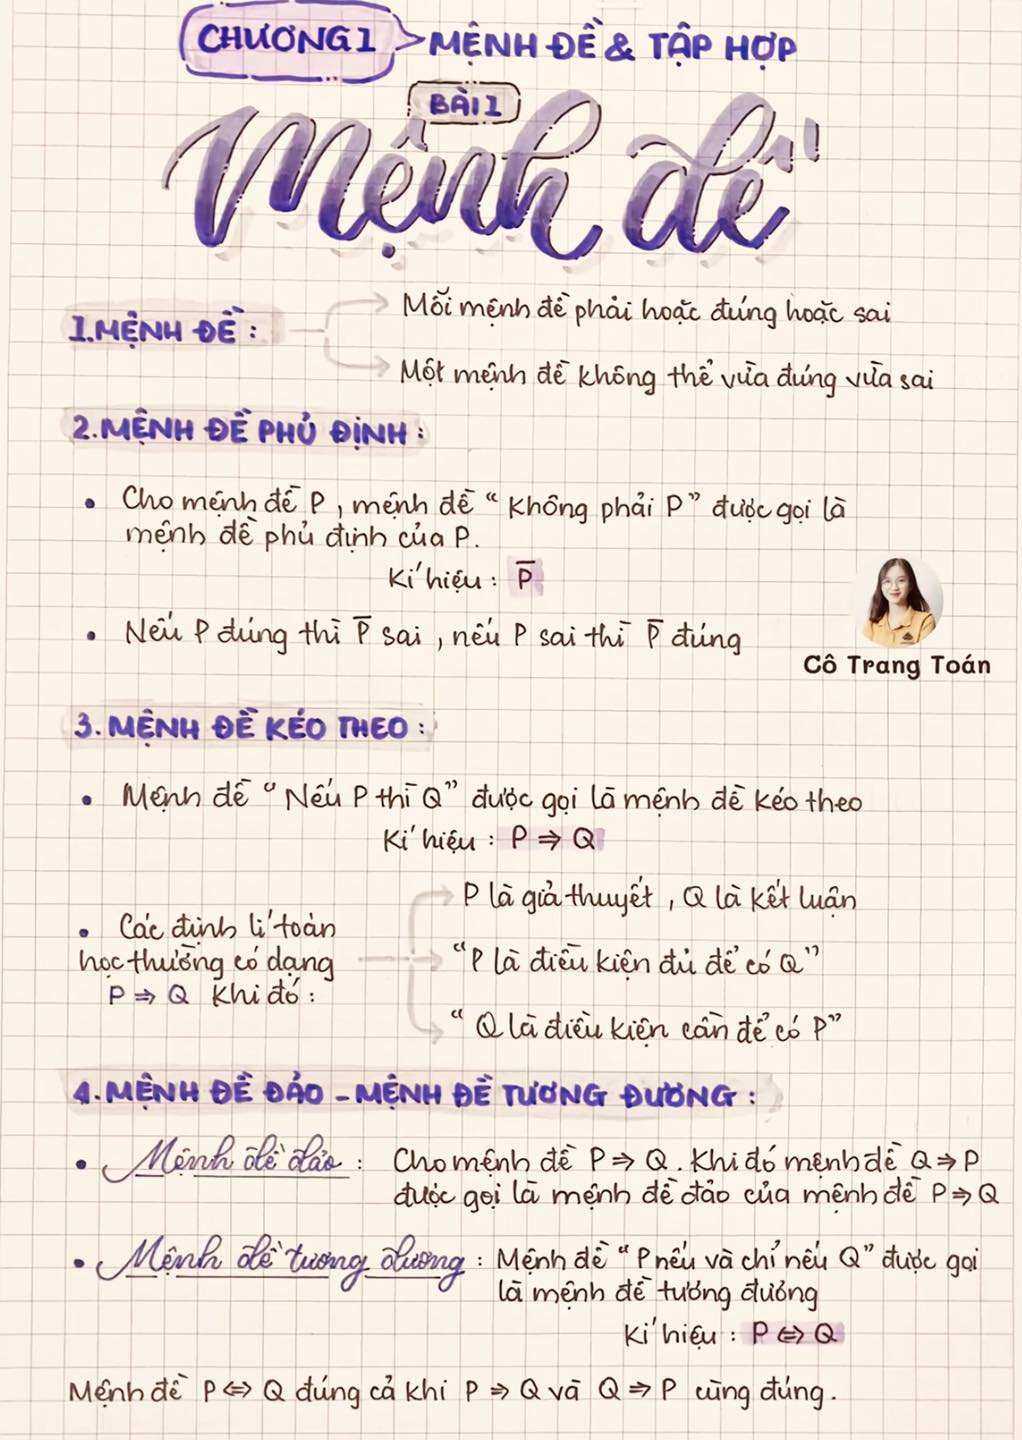 CHƯƠNG 1 MỆNH ĐỀ & TẬP HỢP
BÀI 1
Mệnh đề
1. MỆNH ĐỀ :
Mỗi mệnh đề phải hoặc đúng hoặc sai
Một mệnh đề không thể vừa đúng vừa sai
2. MỆNH ĐỀ PHỦ ĐỊNH :
• Cho mệnh đề P, mệnh đề "Không phải P" được gọi là
mệnh đề phủ định của P.
Kí hiệu : P̅
• Nếu P đúng thì P̅ sai, nếu P sai thì P̅ đúng
Cô Trang Toán
3. MỆNH ĐỀ KÉO THEO :
• Mệnh đề "Nếu P thì Q" được gọi là mệnh đề kéo theo
Kí hiệu : P ⇒ Q
• Các định lí toán
học thường có dạng
P ⇒ Q Khi đó :
P là giả thuyết, Q là kết luận
"P là điều kiện đủ để có Q"
"Q là điều kiện cần để có P"
4. MỆNH ĐỀ ĐẢO - MỆNH ĐỀ TƯƠNG ĐƯƠNG :
• Mệnh đề đảo : Cho mệnh đề P ⇒ Q. Khi đó mệnh đề Q ⇒ P
được gọi là mệnh đề đảo của mệnh đề P ⇒ Q
• Mệnh đề tương đương : Mệnh đề "P nếu và chỉ nếu Q" được gọi
là mệnh đề tương đương
Kí hiệu : P ⇔ Q
Mệnh đề P ⇔ Q đúng cả khi P ⇒ Q và Q ⇒ P cùng đúng.